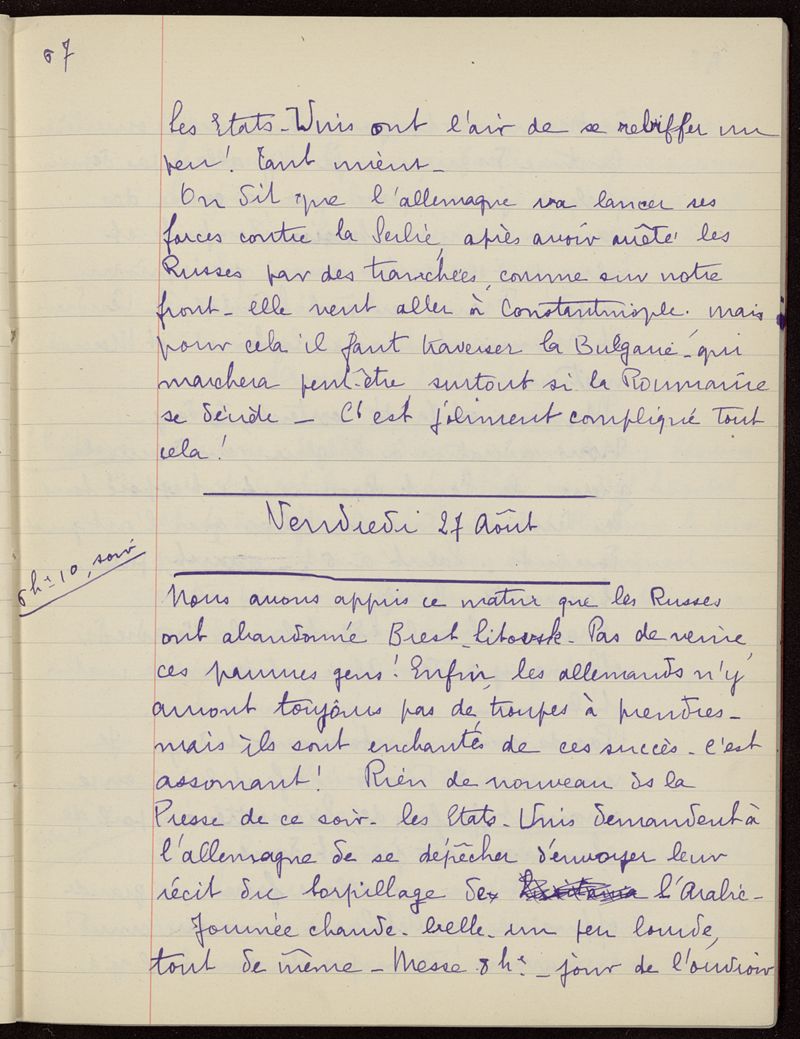 67
les Etats-Unis ont l'air de se rebiffer un
peu! Tant mieux-
On dit que l'allemagne va lancer ses
forces contre la Serbie, après avoir arrêté les
Russes par des tranchées, comme sur notre
front- elle veut aller à Constantinople. mais
pour cela il faut traverser la Bulgarie- qui
marchera peut-être surtout si la Roumanie
se décide - C'est joliment compliqué tout
cela!
Vendredi 27 Août
6 hrs 10, soir
Nous avons appris ce matin que les Russes
ont abandonné Brest-litovsk. Pas de veine,
ces pauvres gens! Enfin, les allemands n'y
auront toujours pas de troupes à prendre-
mais ils sont enchantés de ces succès- c'est
assomant! Rien de nouveau ds la
Presse de ce soir- les Etats-Unis demandent à
l'allemagne de se dépêcher d'envoyer leur
récit du torpillage de l'Arabic-
Journée chaude- belle- un peu lourde,
tout de même - Messe 8 hs - jour de l'ouvroir